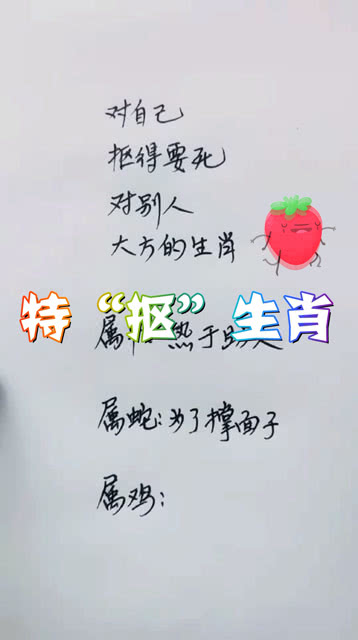 对自己
抠得要死
对别人
大方的生肖
特“抠”生肖
属 热于助人
属蛇:为了撑面子
属鸡: